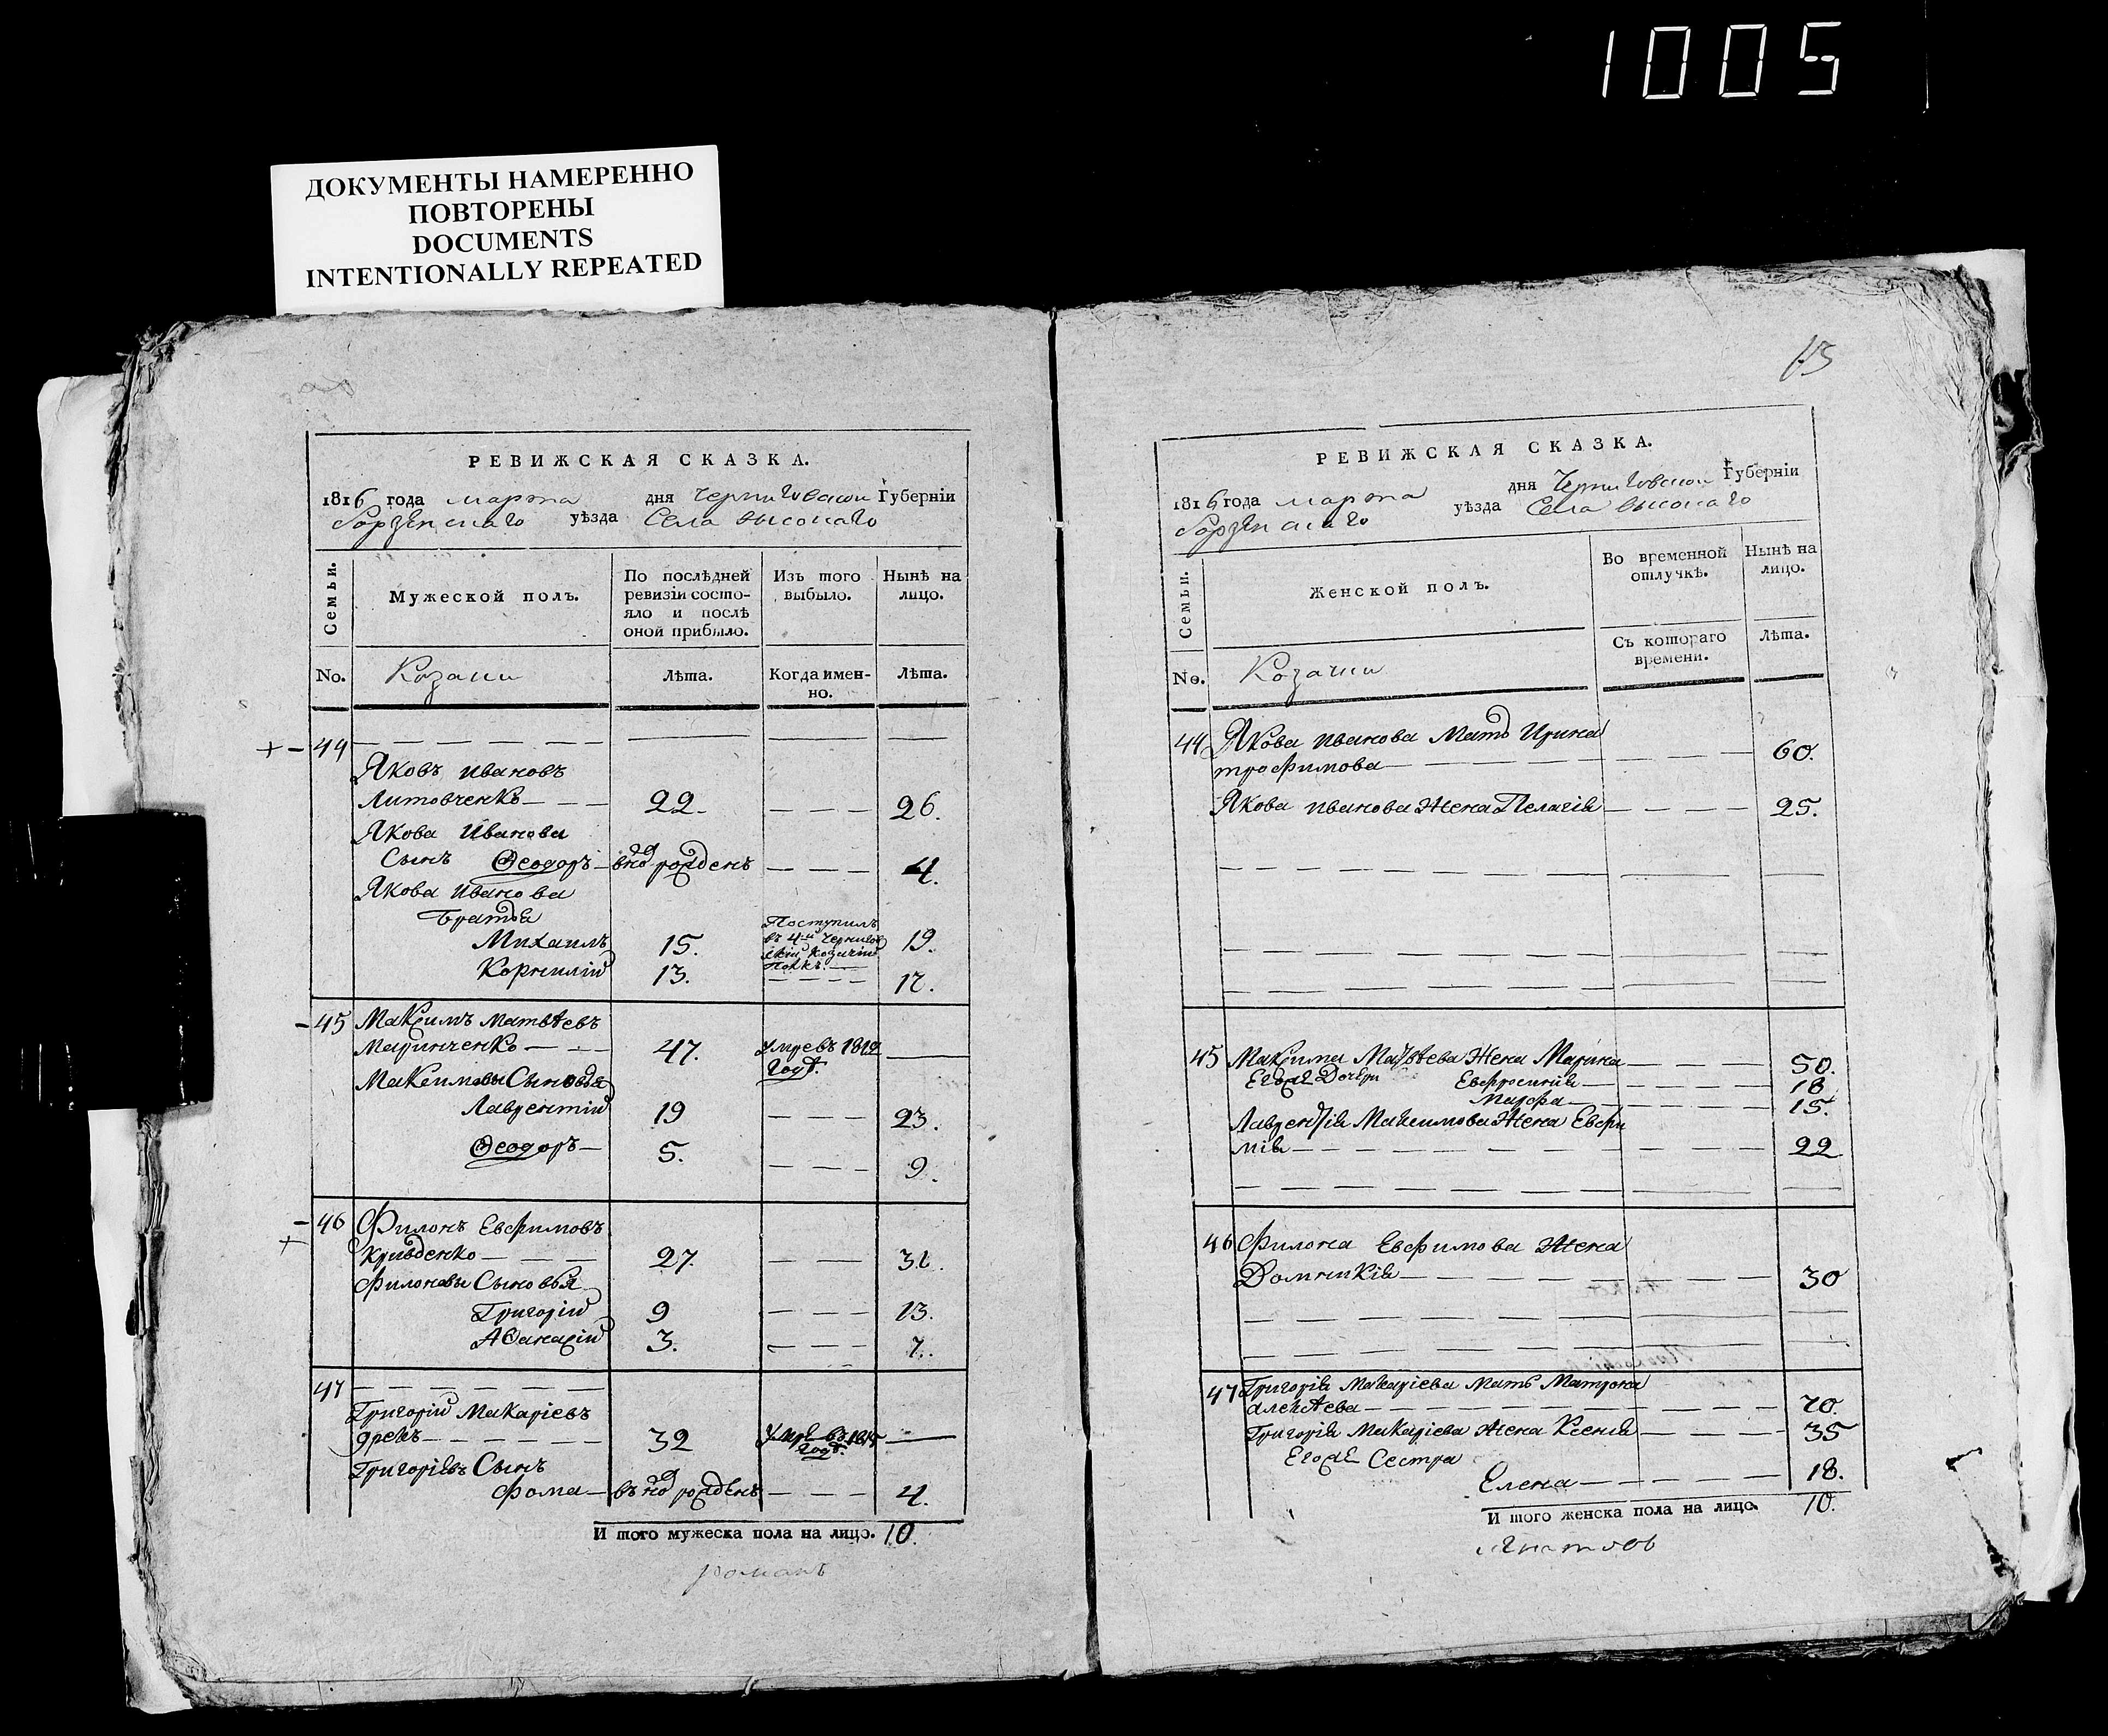 1005
ДОКУМЕНТЫ НАМЕРЕННО
ПОВТОРЕНЫ
DOCUMENTS
INTENTIONALLY REPEATED
РЕВИЖСКАЯ СКАЗКА.
1816 года марта дня Черниговской Губерніи
уѣзда Села высокаго
Семьи.
Мужеской полъ.
По послѣдней
ревизіи состо-
яло и послѣ
оной прибыло.
Изъ того
выбыло.
Нынѣ на
лицо.
No. Козаки Лѣта. Когда имен-
но.
Лѣта.
44
Яковъ ивановъ
Литовченко 22. 26.
Якова Иванова
Сынъ Ѳеодоръ рожденъ 4.
Якова Иванова
братья
Михаилъ 15. Поступилъ
въ 4й Чернигов
скій Козачій
Полкъ. 19.
Корнилій 13. 17.
45 Максимъ Матвѣевъ
Маринченко 47. умре въ 1812
годѣ.
Максимовы Сыновья
Лаврентій 19 23.
Ѳеодоръ 5. 9.
46 Филонъ Евфимовъ
Кривденко 27. 31.
Филоновы Сыновья
Григорій 9 13.
Аѳанасій 3. 7.
47
Григорій Макаріевъ
32 умре въ
годѣ.
Григоріевъ Сынъ
Фома рожденъ 4.
И того мужеска пола на лицо. 10.
романъ
13
РЕВИЖСКАЯ СКАЗКА.
1816 года марта дня Черниговской Губерніи
уѣзда Села высокаго
Семьи.
Женской полъ.
Во временной
отлучкѣ.
Нынѣ на
лицо.
Съ котораго
времени.
Лѣта.
No. Козачки
44 Якова иванова Мать Ирина
трофимова 60.
Якова иванова Жена Пелагія 25.
45 Максима Матвѣева Жена Марина 50.
Его же Дочери Евфросинія 18
Марфа 15.
Лаврентія Максимова Жена Евфи
мія 22
46 Филона Евфимова Жена
Домникія 30
47 Григорія Макаріева Мать Матрона
алексѣева 70.
Григорія Макаріева Жена Ксенія 35
Его же Сестра
Елена 18.
И того женска пола на лицо. 10.